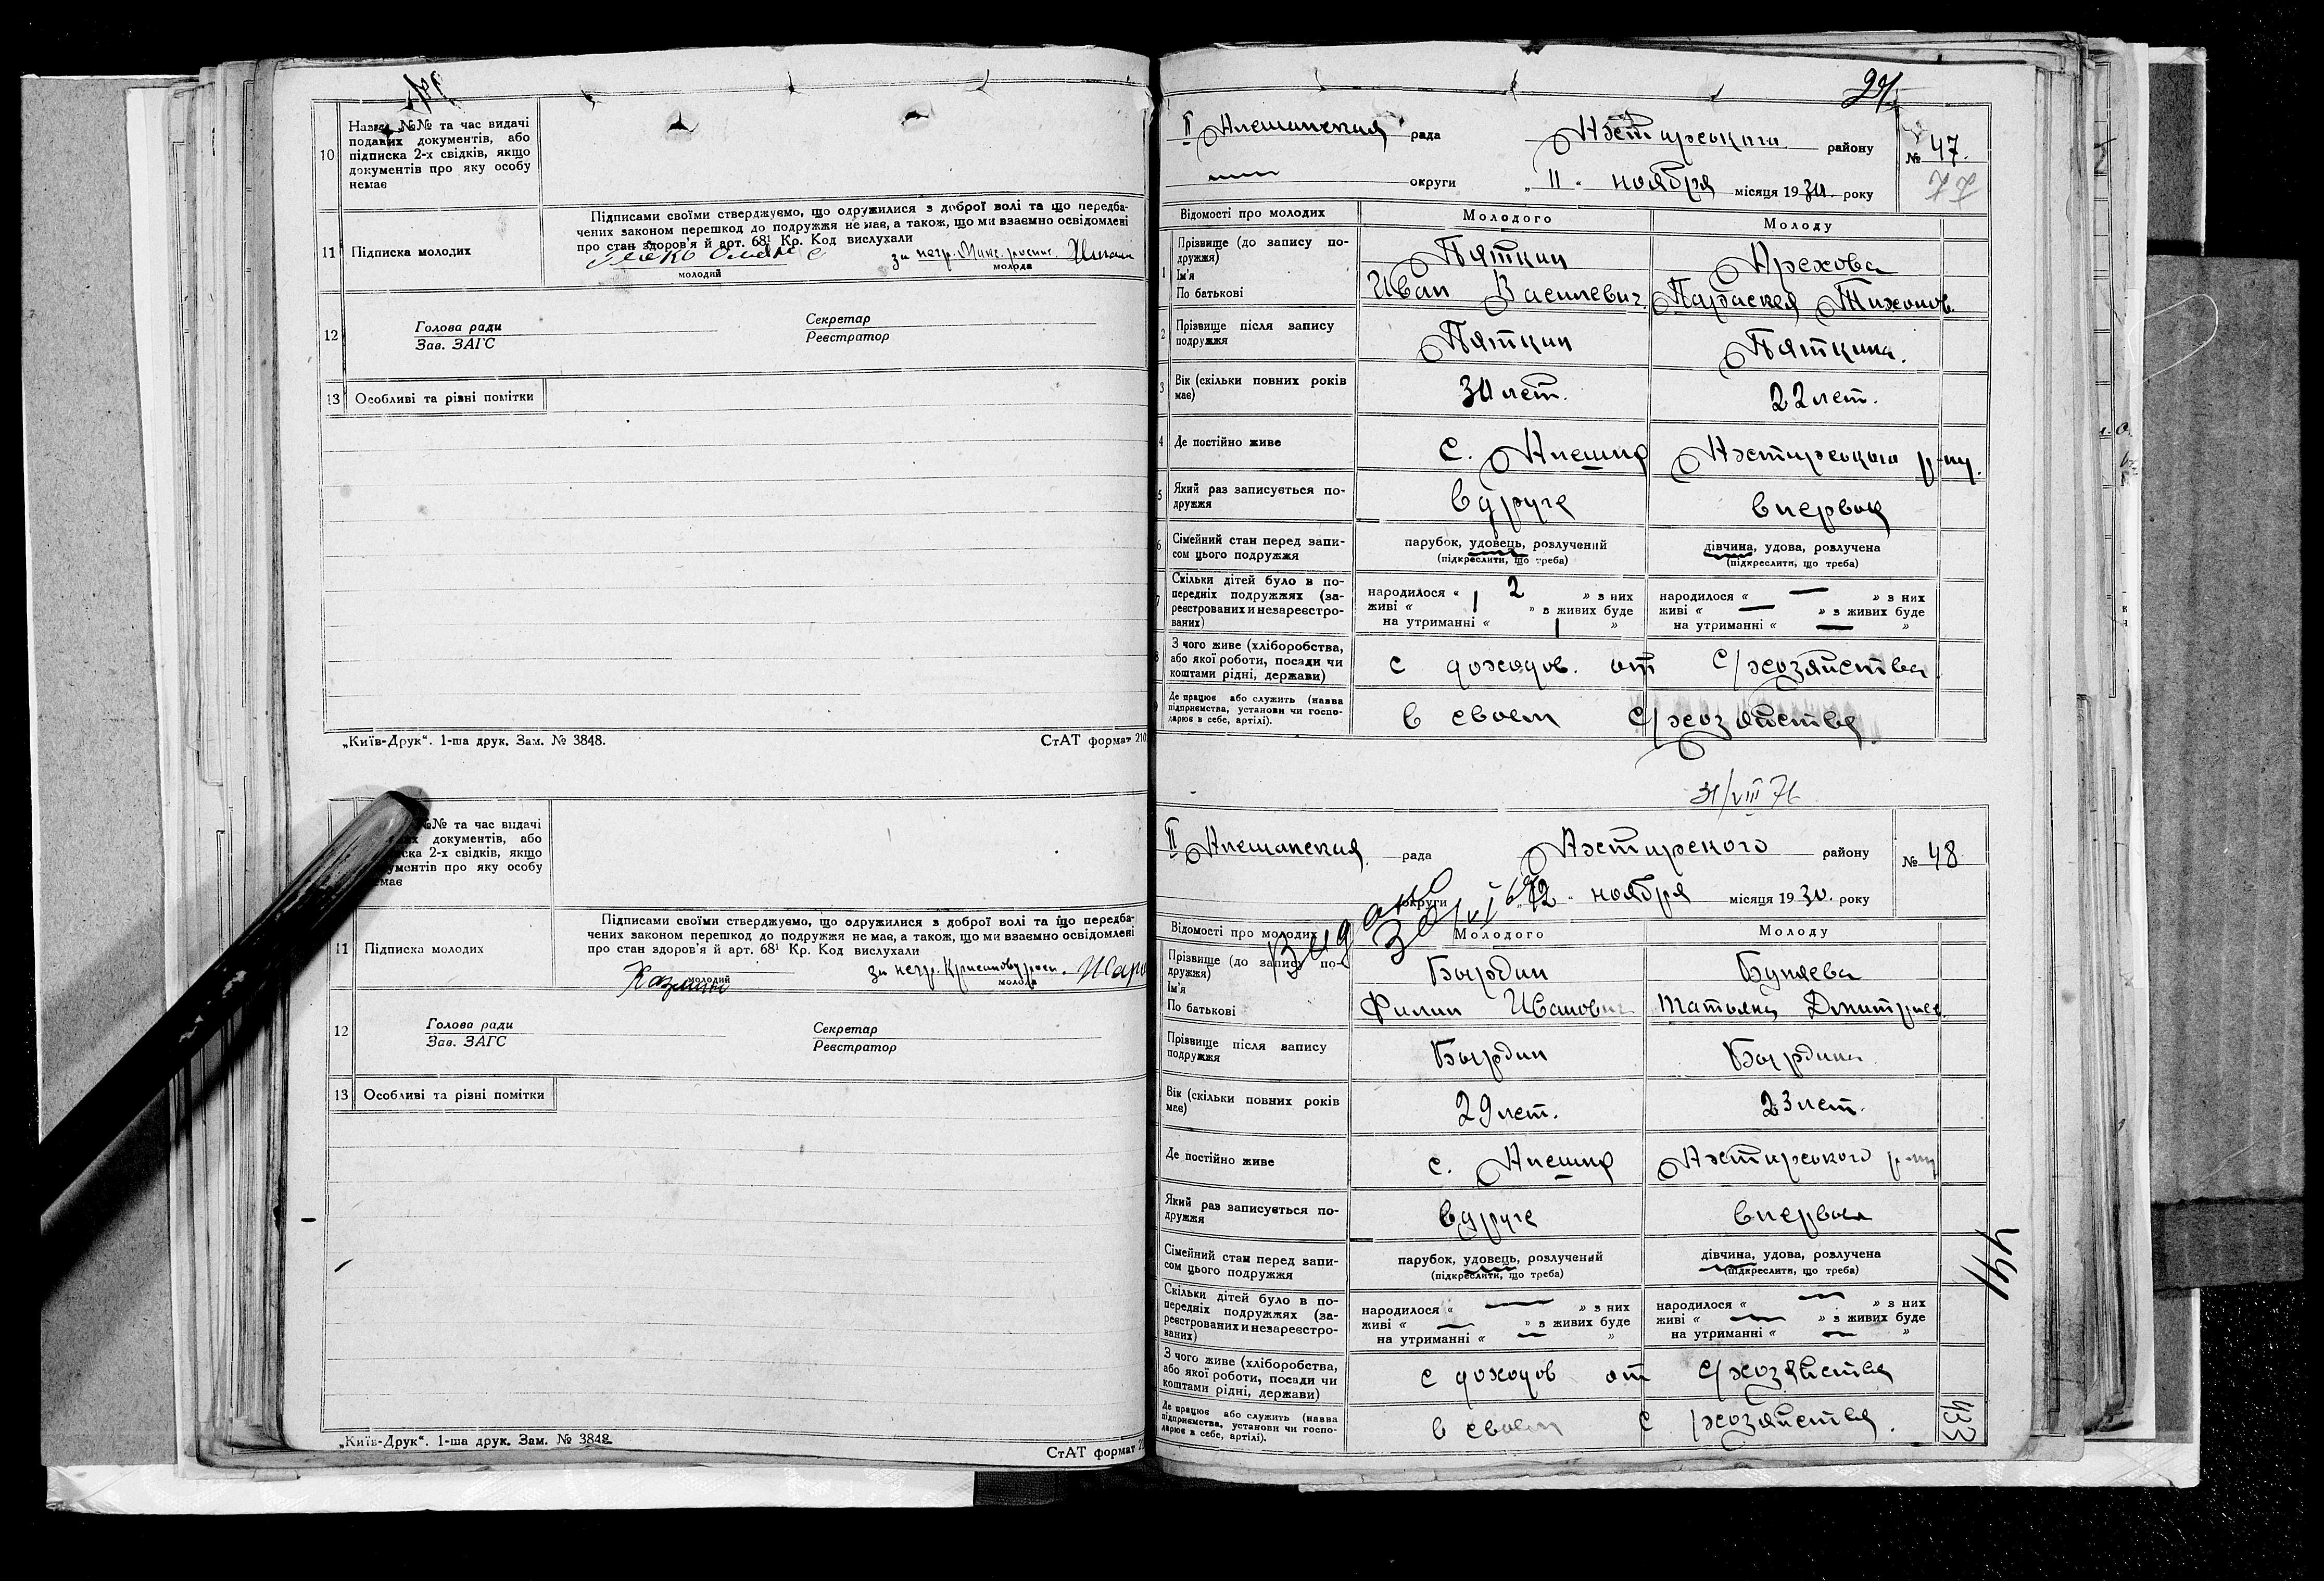 10
Назва №№ та час видачі
поданих документів, або
підписка 2-х свідків, якщо
документів про яку особу
немає
11
Підписка молодих
Підписами своїми стверджуємо, що одружилися з доброї волі та що передба-
чених законом перешкод до подружжя не має, а також, що ми взаємно освідомлені
про стан здоров'я й арт. 68¹ Кр. Код вислухали
за негр.
молодий
молода
12
Голова ради
Зав. ЗАГС
Секретар
Реєстратор
13
Особливі та різні помітки
„Київ-Друк“. 1-ша друк. Зам. № 3848.
СтАТ формат 210
№№ та час видачі
документів, або
2-х свідків, якщо
документів про яку особу
немає
11
Підписка молодих
Підписами своїми стверджуємо, що одружилися з доброї волі та що передба-
чених законом перешкод до подружжя не має, а також, що ми взаємно освідомлені
про стан здоров'я й арт. 68¹ Кр. Код вислухали
за негр.
молодий
молода
12
Голова ради
Зав. ЗАГС
Секретар
Реєстратор
13
Особливі та різні помітки
„Київ-Друк“. 1-ша друк. Зам. № 3848.
СтАТ формат
II Алешанская рада Ахтирського району № 47.
округи „ 11 “ ноября місяця 1930. року
Відомості про молодих Молодого Молоду
1 Прізвище (до запису по-
дружжя) Пяткин Орехова
Ім'я
По батькові Иван Василевич Параскея Тихонов.
2 Прізвище після запису
подружжя Пяткин Пяткина.
3 Вік (скільки повних років
має) 30 лет. 22 лет.
4 Де постійно живе с. Алешня Ахтирського р-ну.
5 Який раз записується по-
дружжя вдруге впервой
6 Сімейний стан перед запи-
сом цього подружжя парубок, удовець, розлучений дівчина, удова, розлучена
(підкреслити, що треба) (підкреслити, що треба)
7 Скільки дітей було в по-
передніх подружжях (за-
реєстрованих и незареєстро-
ваних)
народилося « 2 » з них народилося « — » з них
живі « 1 » з живих буде живі « — » з живих буде
на утриманні « 1 » на утриманні « — »
8 З чого живе (хліборобства,
або якої роботи, посади чи
коштами рідні, держави) с доходов. от с/хозяйства
Де працює або служить (назва
підприємства, установи чи госпо-
дарює в себе, артілі). в своем с/хозяйстве
31/VIII 71
II Алешанская рада Ахтирского району № 48
округи „ 12 “ ноября місяця 1930. року
Видано
Відомості про молодих Молодого Молоду
Прізвище (до запису по-
дружжя) Бырдин Буняева
Ім'я
По батькові Филип Иванович Татьяна Дмитриев.
Прізвище після запису
подружжя Бырдин Бырдина
Вік (скільки повних років
має) 29 лет. 23 лет.
Де постійно живе с. Алешня Ахтирського р-ну
Який раз записується по-
дружжя вдруге впервой
Сімейний стан перед запи-
сом цього подружжя парубок, удовець, розлучений дівчина, удова, розлучена
(підкреслити, що треба) (підкреслити, що треба)
Скільки дітей було в по-
передніх подружжях (за-
реєстрованих и незареєстро-
ваних)
народилося « — » з них народилося « — » з них
живі « — » з живих буде живі « — » з живих буде
на утриманні « — » на утриманні « — »
З чого живе (хліборобства,
або якої роботи, посади чи
коштами рідні, держави) с доходов от с/хозяйства
Де працює або служить (назва
підприємства, установи чи госпо-
дарює в себе, артілі). в своем с/хозяйстве.
441
433